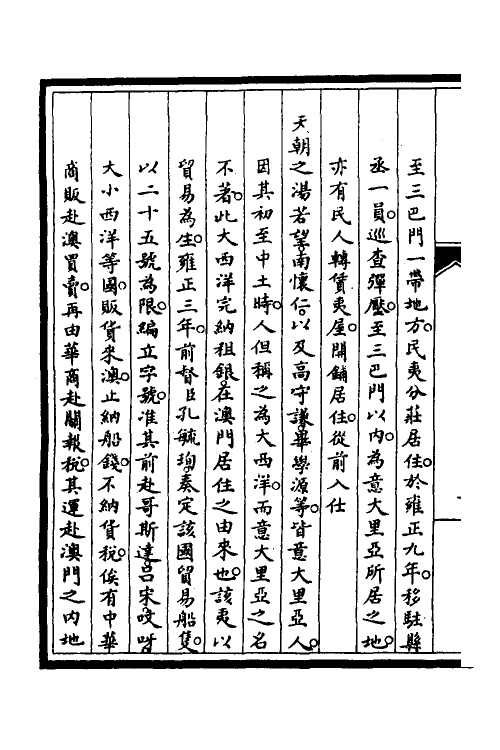 至三巴門一帶地方。民夷分莊居住。於雍正九年。移駐縣
丞一員。巡查彈壓。至三巴門以內。為意大里亞所居之地。
亦有民人轉賃夷屋。開鋪居住。從前入仕
天朝之湯若望。南懷仁。以及高守謙。畢學源等。皆意大里亞人。
因其初至中土時。人但稱之為大西洋。而意大里亞之名
不著。此大西洋完納租銀。在澳門居住之由來也。該夷以
貿易為生。雍正三年。前督臣孔毓珣。奏定該國貿易船隻。
以二十五號為限。編立字號。准其前赴哥斯達。呂宋。咬𠺕
大小西洋等國。販貨來澳。止納船錢。不納貨稅。俟有中華
商販赴澳買賣。再由華商赴關報稅。其運赴澳門之內地